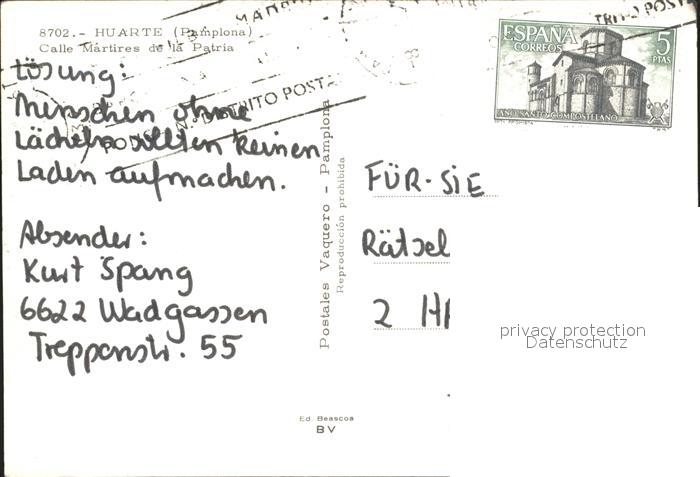 8702.- HUARTE (Pamplona)
Calle Mártires de la Patria
Lösung:
Menschen ohne
Lächeln sollten keinen
Laden aufmachen.
Absender:
Kurt Spang
6622 Wadgassen
Treppenstr. 55
Postales Vaquero - Pamplona
Reproducción prohibida
Ed. Beascoa
BV
ESPAÑA
CORREOS
5
PTAS
AÑO SANTO COMPOSTELANO
TRITO POSTAL
DISTRITO POSTAL
FÜR-SIE
Rätsel
2 HA
privacy protection
Datenschutz